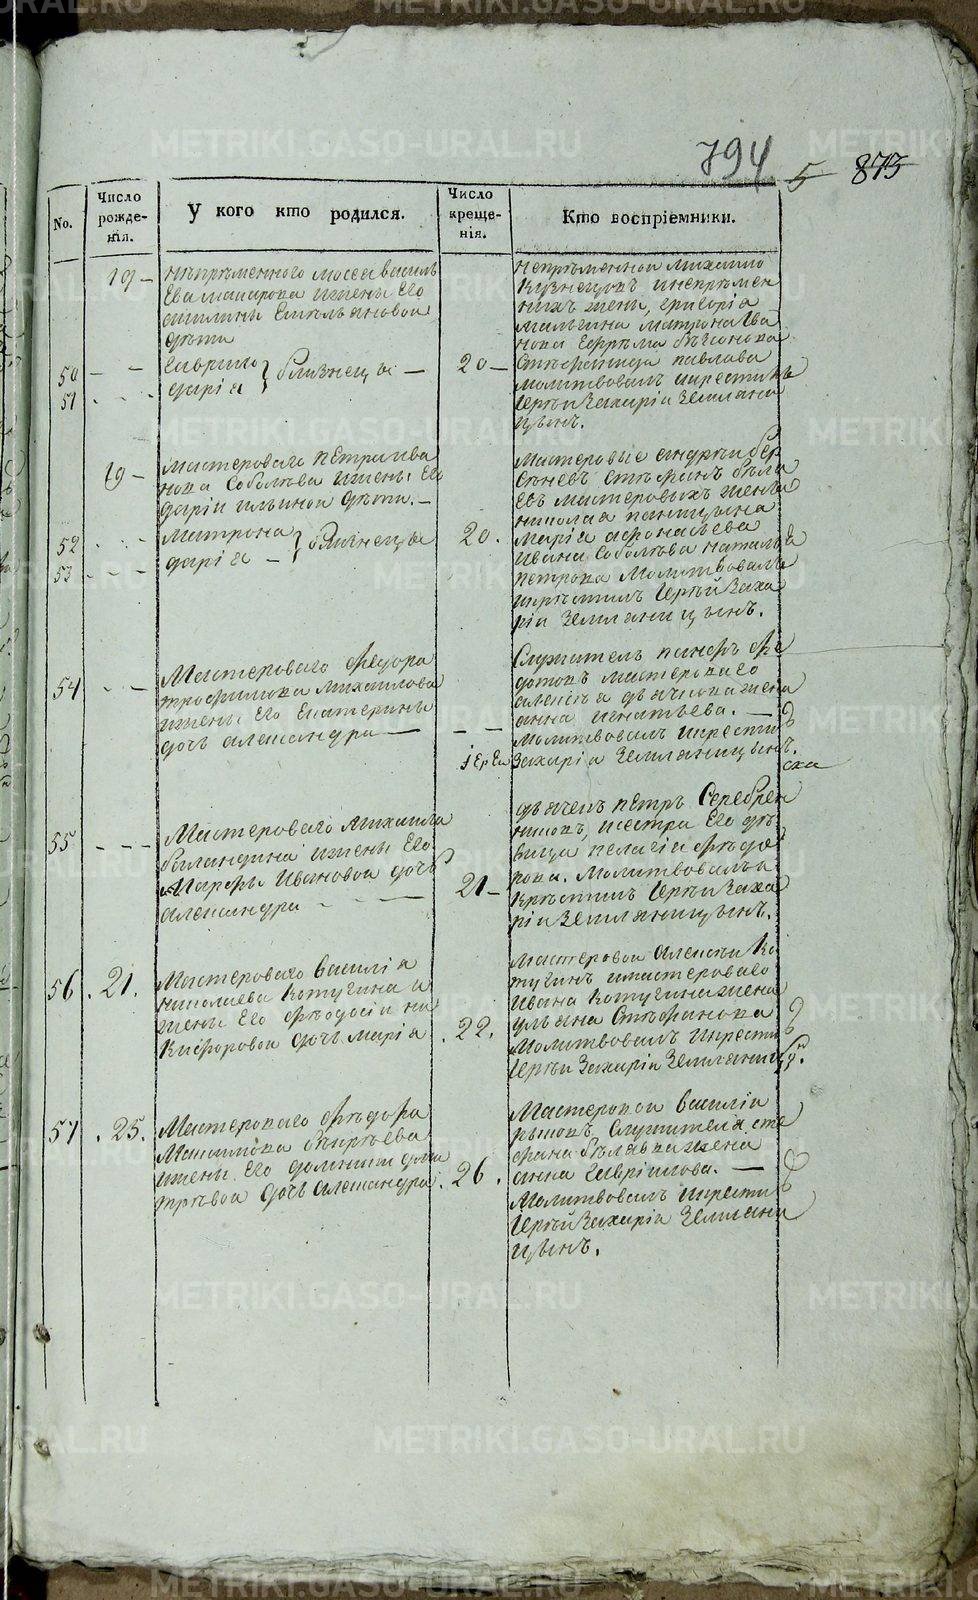 METRIKI.GASO-URAL.RU
794
5 873
No.
Число рожде-нія.
У кого кто родился.
Число креще-нія.
Кто воспріемники.
19 —
непремѣнного Мосея василь
ева Макарова ижены Его
акилины Емельяновой
дѣти
50 — — гаврило
51 - - - дарія } близнецы —
20 —
непремѣнной михаило
Кузнецовъ инепремѣн
ныхъ жены, григорія
малыгина матрона Ива
нова Ефрема
Стефанида павлова
молитвовалъ икрестилъ
Іерей Захаріа Земляни
цынъ.
19 —
мастероваго петра ива
нова Соболева ижены Его
даріи ильиной дѣти. —
52 - - - матрона
53 - - - дарія — } близнецы
20.
мастеровые андрей бер
сеневъ стефанъ бѣла
евъ мастеровыхъ жены
николая паницына
марія афонасьева
Ивана Соболева наталья
петрова молитвовалъ
икрестилъ Іерей Заха
рія Земляницынъ.
54 - - -
Мастероваго Федора
трофимова михаилова
ижены Его Екатерины
дочь александра —
— —
Служитель панфъ фе
дотовъ мастероваго
алексѣя дьячкова жена
анна игнатьева. —
молитвовалъ икрестилъ
іерей Захаріа Земляницынъ.
55 - - -
Мастероваго Михаила
баландина ижены Его
Марфы Ивановой дочь
александра - — —
21 —
дьячекъ петръ Серебрен
никовъ, исестра Его дѣ
вица пелагія федо
рова. молитвовалъ и
крестилъ Іерей Заха
рія Земляницынъ.
56 . 21.
Мастероваго Василія
николаева Котугина и
жены Его федосіи ни
кифоровой дочь марія
. 22.
мастеровой алексѣй Ко
тугинъ имастероваго
Ивана Котугина жена
ульяна Стефанова
молитвовалъ икрестилъ
Іерей Захаріа Земляницын.
57 . 25.
Мастероваго Федора
Максимова
ижены Его домники дми
тріевой дочь александра
. 26 .
Мастеровой Василій
рыковъ, Служителя сте
фана бѣляева жена
анна гаврилова. —
Молитвовалъ икрестилъ
Іерей Захаріа Земляни
цынъ.